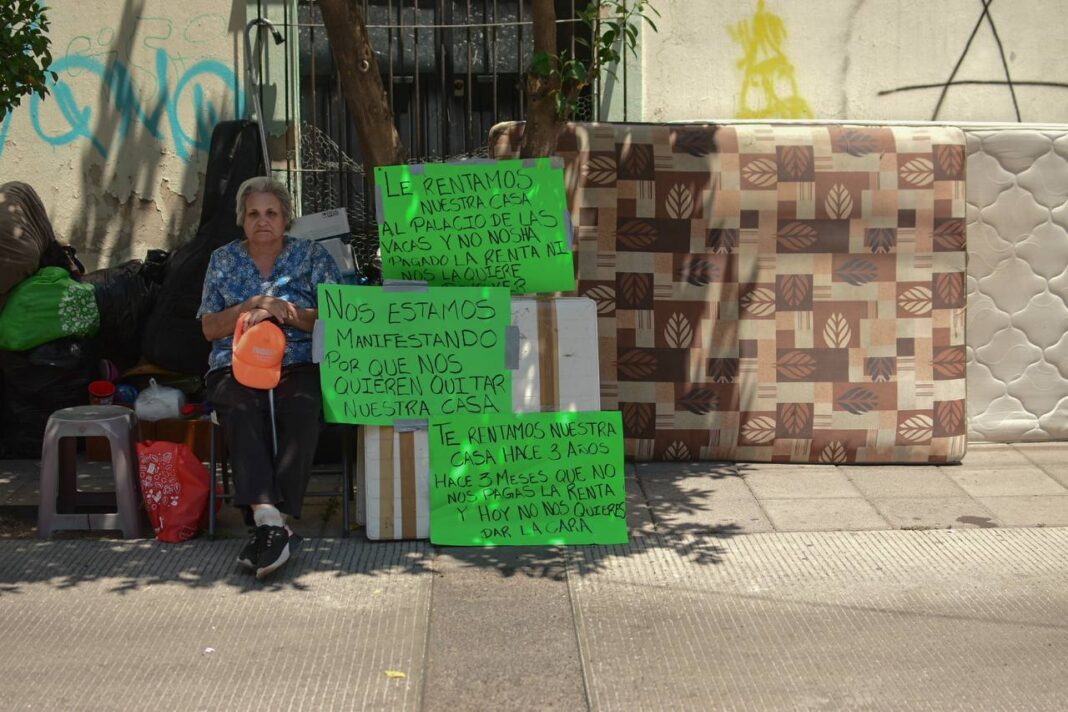 LE RENTAMOS
NUESTRA CASA
AL PALACIO DE LAS
VACAS Y NO NOSHA
PAGADO LA RENTA NI
NOS LA QUIERE
NOS ESTAMOS
MANIFESTANDO
POR QUE NOS
QUIEREN QUITAR
NUESTRA CASA
TE RENTAMOS NUESTRA
CASA HACE 3 AÑOS
HACE 3 MESES QUE NO
NOS PAGAS LA RENTA
Y HOY NO NOS QUIERES
DAR LA CARA